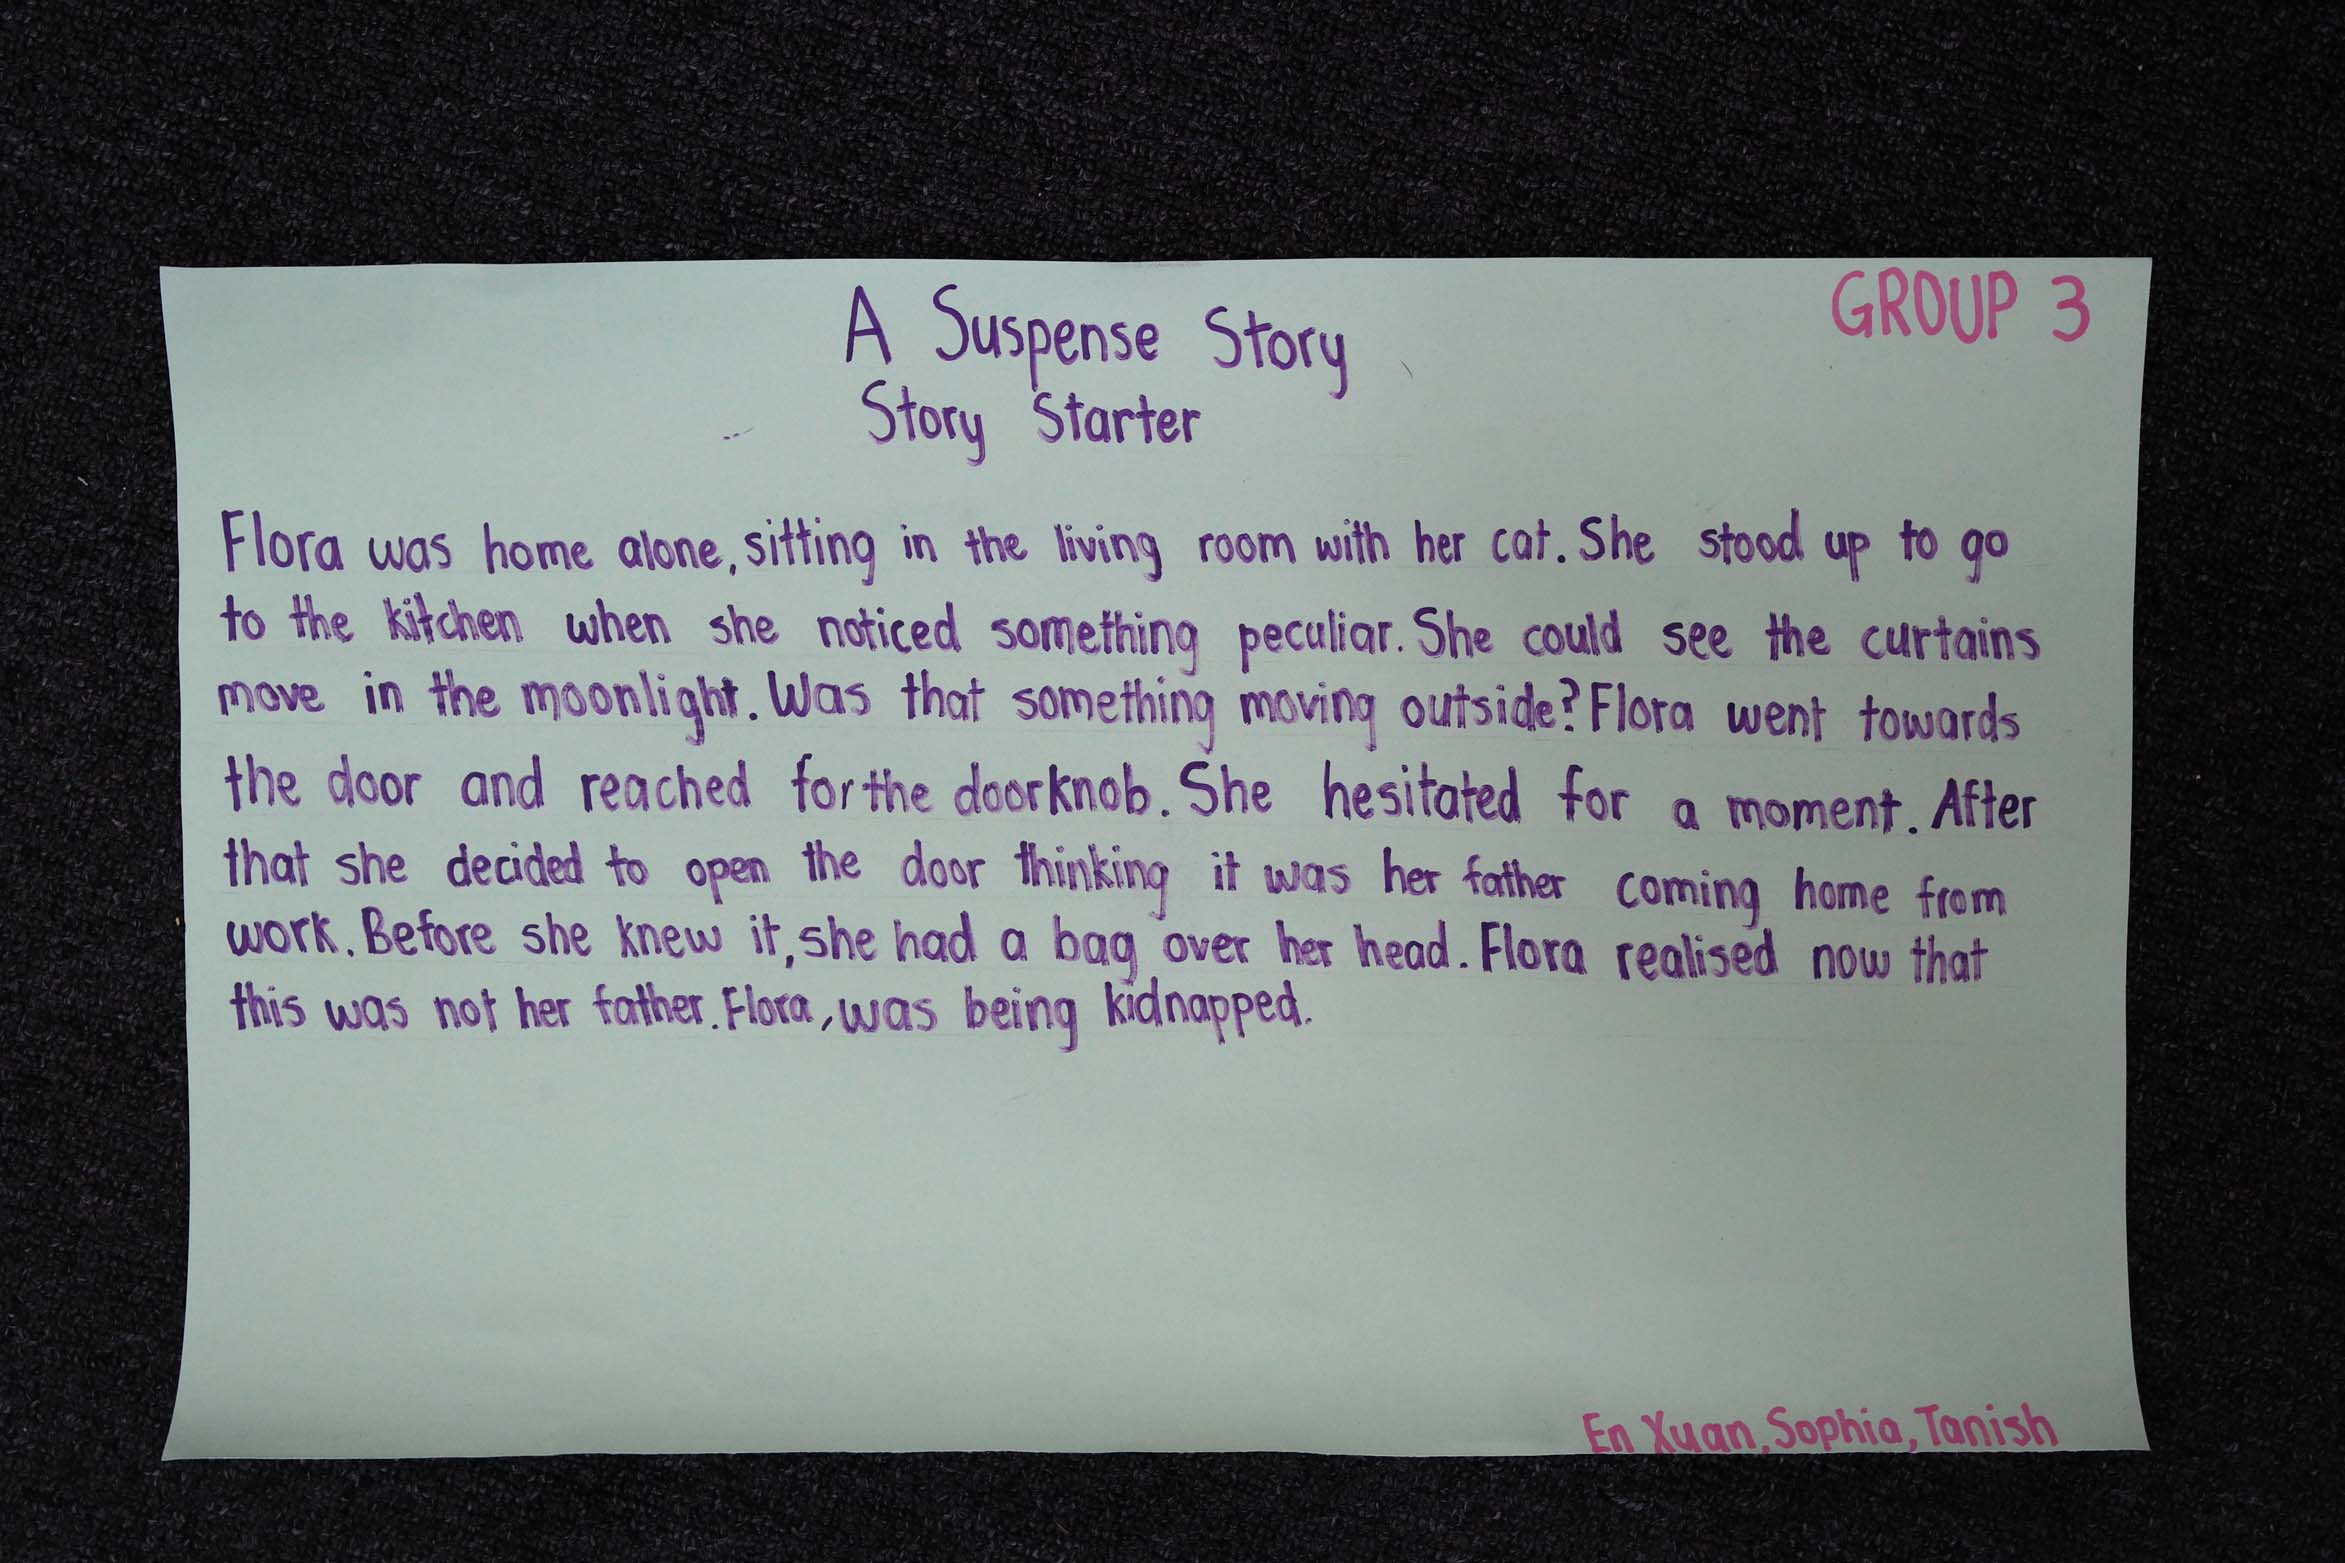 GROUP 3
A Suspense Story
Story Starter
Flora was home alone, sitting in the living room with her cat. She stood up to go
to the kitchen when she noticed something peculiar. She could see the curtains
move in the moonlight. Was that something moving outside? Flora went towards
the door and reached for the doorknob. She hesitated for a moment. After
that she decided to open the door thinking it was her father coming home from
work. Before she knew it, she had a bag over her head. Flora realised now that
this was not her father. Flora, was being kidnapped.
En Xuan, Sophia, Tanish